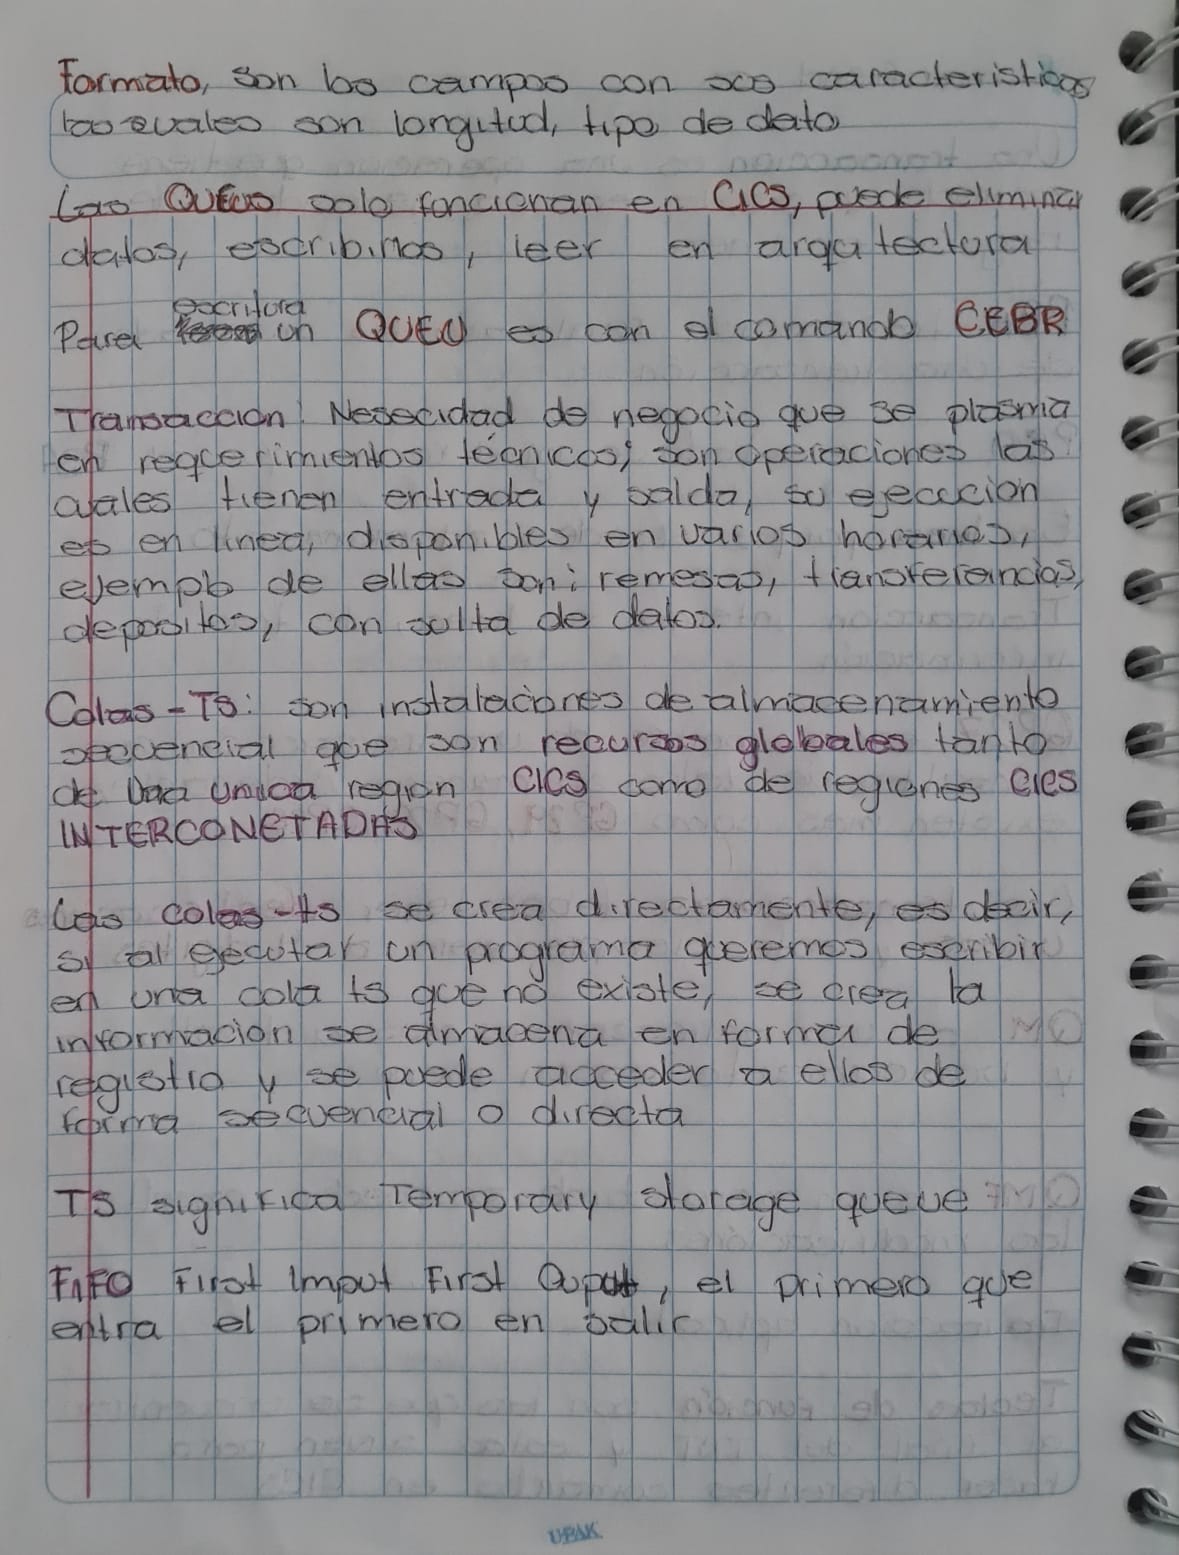 Formato, son los campos con sus caracteristicas
las cuales son longitud, tipo de dato
Las QUEUS solo funcionan en CICS, puede eliminar
datos, escribimos, leer en arquitectura
escritura
Para un QUEU es con el comando CEBR
Transaccion: Nesecidad de negocio que se plasma
en requerimientos técnicos, son operaciones las
cuales tienen entrada y salida, su ejecucion
es en linea, disponibles en varios horarios,
ejemplo de ellas son: remesas, transfereincias,
depositos, consulta de datos.
Colas-TS: son instalaciones de almacenamiento
secuencial que son recursos globales tanto
de una unica region CICS como de regiones CICS
INTERCONETADAS
Las colas-ts se crea directamente, es decir,
si al ejecutar un programa queremos escribir
en una cola ts que no existe, se crea la
informacion se almacena en forma de
registro y se puede acceder a ellos de
forma secuencial o directa
TS significa Temporary storage queue
FIFO First Imput First Ouput, el primero que
entra el primero en salir
UBAK